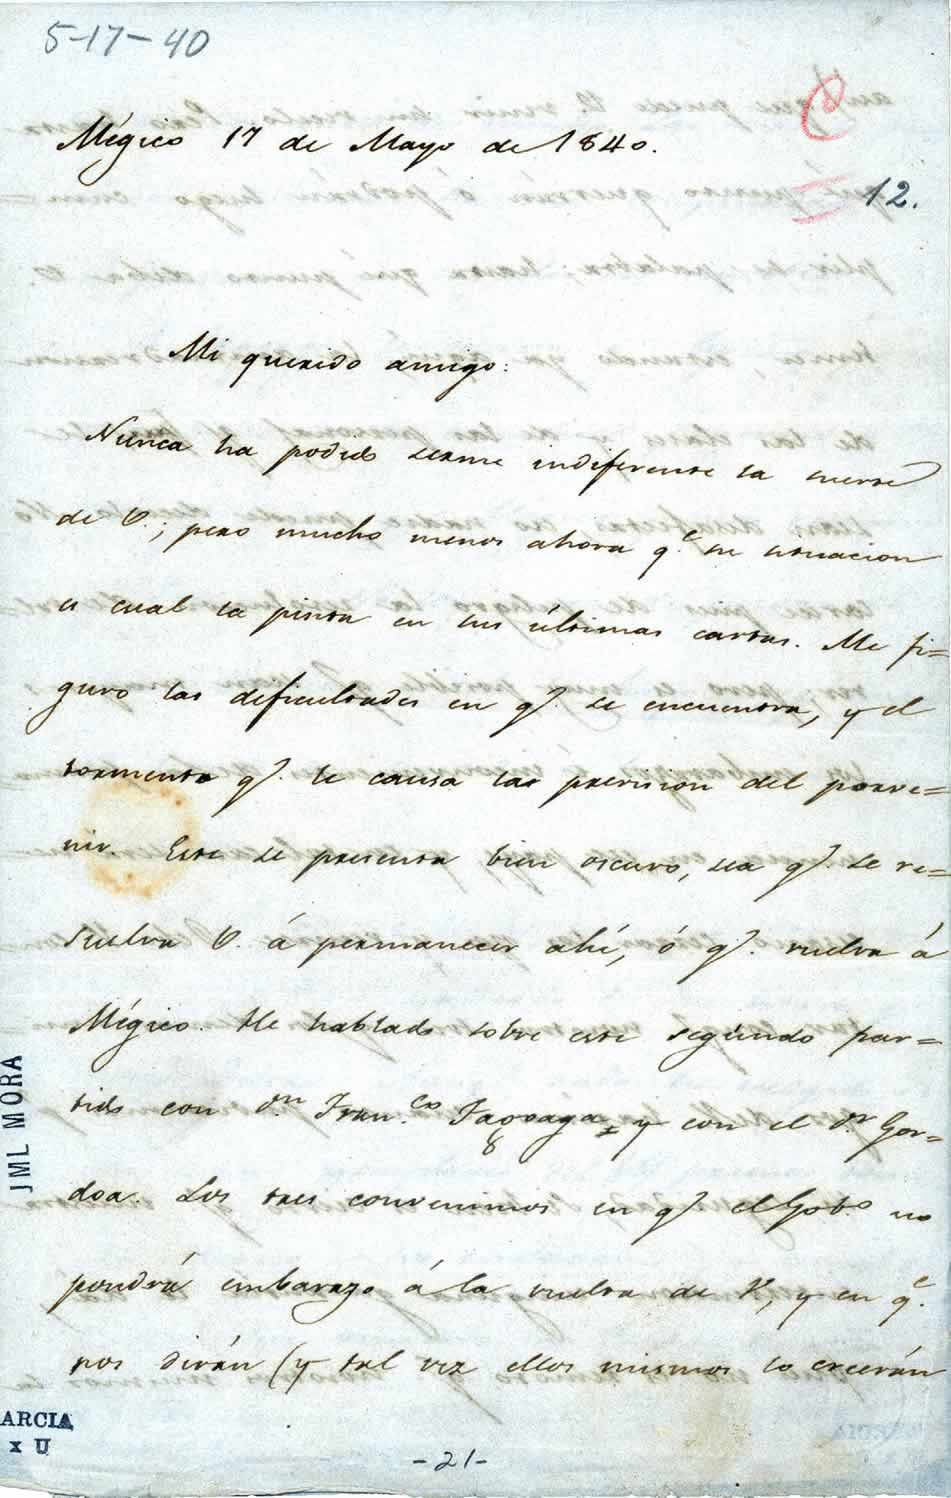 5-17-40
Mégico 17 de Mayo de 1840.
12.
Mi querido amigo:
Nunca ha podido serme indiferente la suerte
de V.; pero mucho menos ahora q.e su situacion
es cual la pinta en sus últimas cartas. Me fi=
guro las dificultades en q.e se encuentra, y el
tormento q.e le causa la prevision del porve=
nir. Este se presenta bien oscuro, sea q.e se re=
suelva V. á permanecer ahí, ó q.e vuelva á
Mégico. He hablado sobre este segundo par=
tido con d.n Fran.co Fagoaga y con el d.r Gor=
doa. Los tres convenimos en q.e el Gob.o no
pondrá embarazo á la vuelta de V., y en q.e
nos dirán (y tal vez ellos mismos lo creerán
JML MORA
ARCIA
x U
-21-